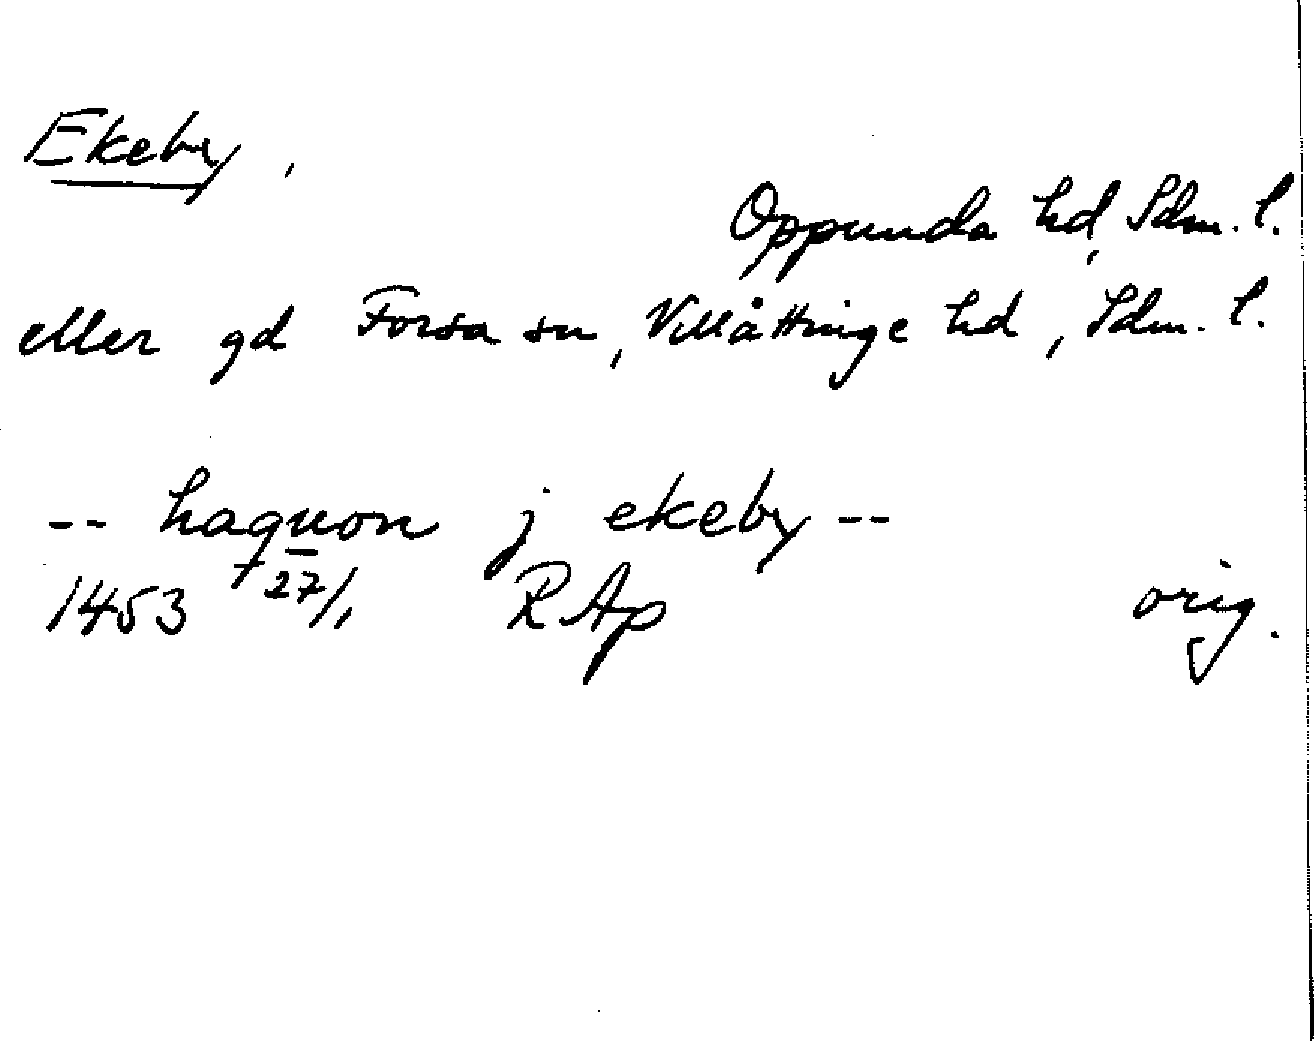 Ekeby,
Oppunda hd, Sdm. l.
eller gd Forsa sn, Villåttinge hd, Sdm. l.
-- haquon j ekeby --
1453 27/1 RAp orig.